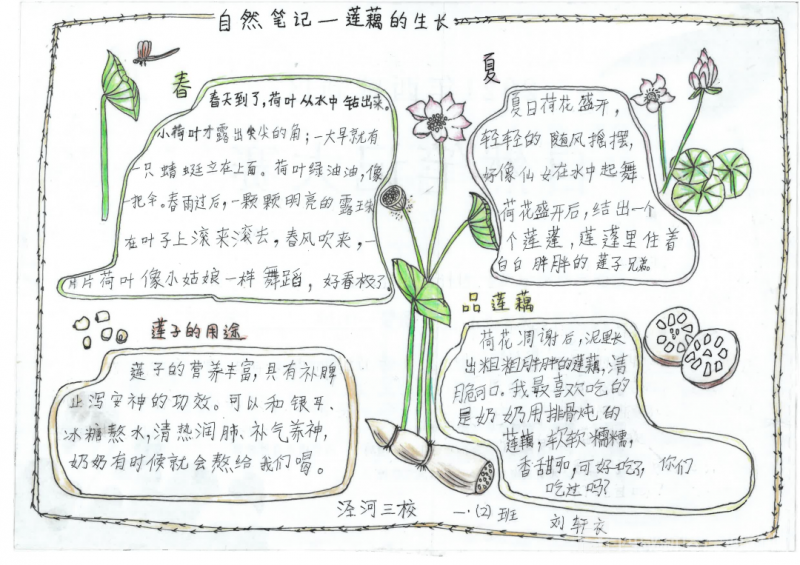 自然笔记—莲藕的生长
春
春天到了,荷叶从水中钻出来。
小荷叶才露出尖尖的角;一大早就有
一只蜻蜓立在上面。荷叶绿油油,像
一把伞。春雨过后,一颗颗明亮的露珠
在叶子上滚来滚去,春风吹来,一
片片荷叶像小姑娘一样舞蹈,好看极了。
夏
夏日荷花盛开,
轻轻的随风摇摆,
好像仙女在水中起舞
荷花盛开后,结出一个
个莲蓬,莲蓬里住着
白白胖胖的莲子兄弟。
莲子的用途
莲子的营养丰富,具有补脾
止泻安神的功效。可以和银耳、
冰糖熬水,清热润肺、补气养神,
奶奶有时候就会熬给我们喝。
品莲藕
荷花凋谢后,泥里长
出粗粗胖胖的莲藕,清
脆可口。我最喜欢吃的
是奶奶用排骨炖的
莲藕,软软糯糯,
香甜可口,可好吃了,你们
吃过吗?
泾河三校
一·(2)班
刘轩